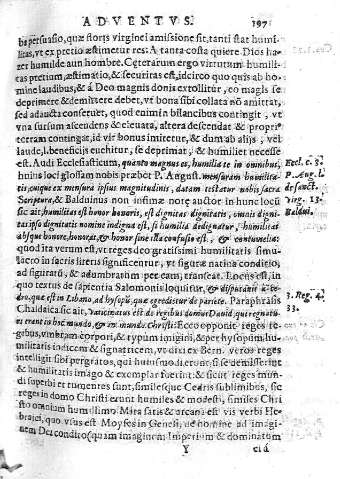 ADVENTVS. 197
ba persuasio, quæ storis virginei amissione sit, tanti stat humi-
litas, vt ex pretio æstimetur res: A tanta costa quiere Dios ha-
zer humilde aun hombre. Cæterarum ergo virtutum humili-
tas pretium, æstimatio, & securitas est, idcirco quo quis ab ho-
mine laudibus, & á Deo magnis donis extollitur, eo magis se
deprimere & demittere debet, vt bona sibi collata nō amittat,
sed adaucta conseruet, quod enim in bilancibus contingit, vt
vna sursum ascendens & eleuata, altera descendat & propri
cteram contingat, id vir bonus imitetur, & dum ab alijs, vel
laude, l. beneficijs euehitur, se deprimat, & humiliet necesse
est. Audi Ecclesiasticum, quanto magnus es, humilia te in omnibus,
huius loci glossam nobis præbet P. August. mensuram humilita-
tis, cuique ex mensura ipsius magnitudinis, datam testatur nobis sacra
Scriptura, & Balduinus non infimæ notæ auctor in hunc locũ
sic ait, humilitas est honor honoris, est dignitas dignitatis, omnis digni-
tas ipso dignitatis nomine indigna est, si humilia dedignatur, humilitas
absque honore, honor, at, & honor sine illa confusio est, & contumelia:
quod ita verum est, vt reges deo gratissimi humilitatis simu-
lacro in sacris literis significentur, vt figuræ natina conditio,
ad figurati, & adumbrati per eam, transeat. Locus est, in
quo textus de sapientia Salomonis loquitur, & disputauit à ce-
dro, quæ est in Libano, ad hysopũ, quæ egreditur de pariete. Paraphrasis
Chaldaica sic ait, vaticinatus est de regibus domus Dauid, qui regnatu-
ri erant in hoc mundo, & ex mundo, Christi: Ecco opponit reges re-
gibus, vmbram corpori, & typum imagini, & per hysopum hu-
militatis indicem & significem, vt dixi ex Bern. veros reges
intelligit sibi pergratos, qui humiles
& humilitatis imago & exemplar fuerint: & sicut reges mun
di superbi et tumentes sunt, similesque Cedris sublimibus, sic
reges in domo Christi erunt humiles & modesti, similes Chri
sto omnium humillimo. Mira satis & arcani est vis verbi He-
braici, quo vsus est Moyses in Genesi, de homine ad imagi-
nem Dei condito (quam imaginem Imperium & dominatum
Y
Eccl. c. 3.
P. Aug. l.
de sanct.
virg. 13.
Baldui.
3. Reg. 4.
33.